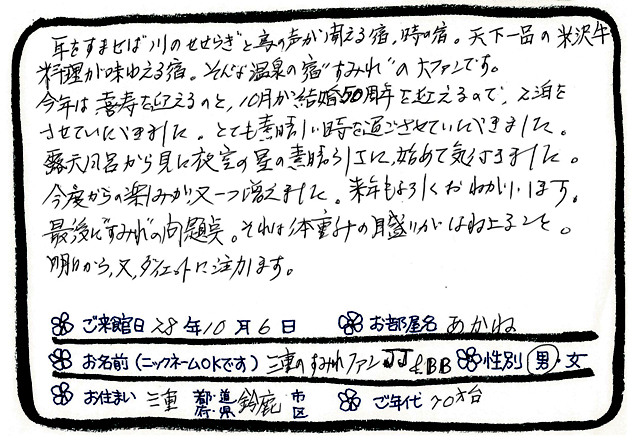 耳をすませば川のせせらぎと鳥の声が聞える宿、時の宿。天下一品の米沢牛
料理が味わえる宿。そんな温泉の宿"すみれ"の大ファンです。
今年は喜寿を迎えるのと、10月が結婚50周年を迎えるので、2泊を
させていただきました。とても素晴しい時を過ごさせていただきました。
露天風呂から見た夜空の星の素晴らしさに、始めて気付きました。
今度からの楽しみが、又一つ増えました。来年もよろしくおねがいします。
最後に"すみれ"の問題点。それは体重計の目盛りがはね上ること。
明日から、又、ダイエットに注力します。
ご来館日 28年10月6日 お部屋名 あかね
お名前(ニックネームOKです) 三重のすみれファン JJ&BB 性別 男・女
お住まい 三重 都・道・府・県 鈴鹿 市 区 ご年代 70才台